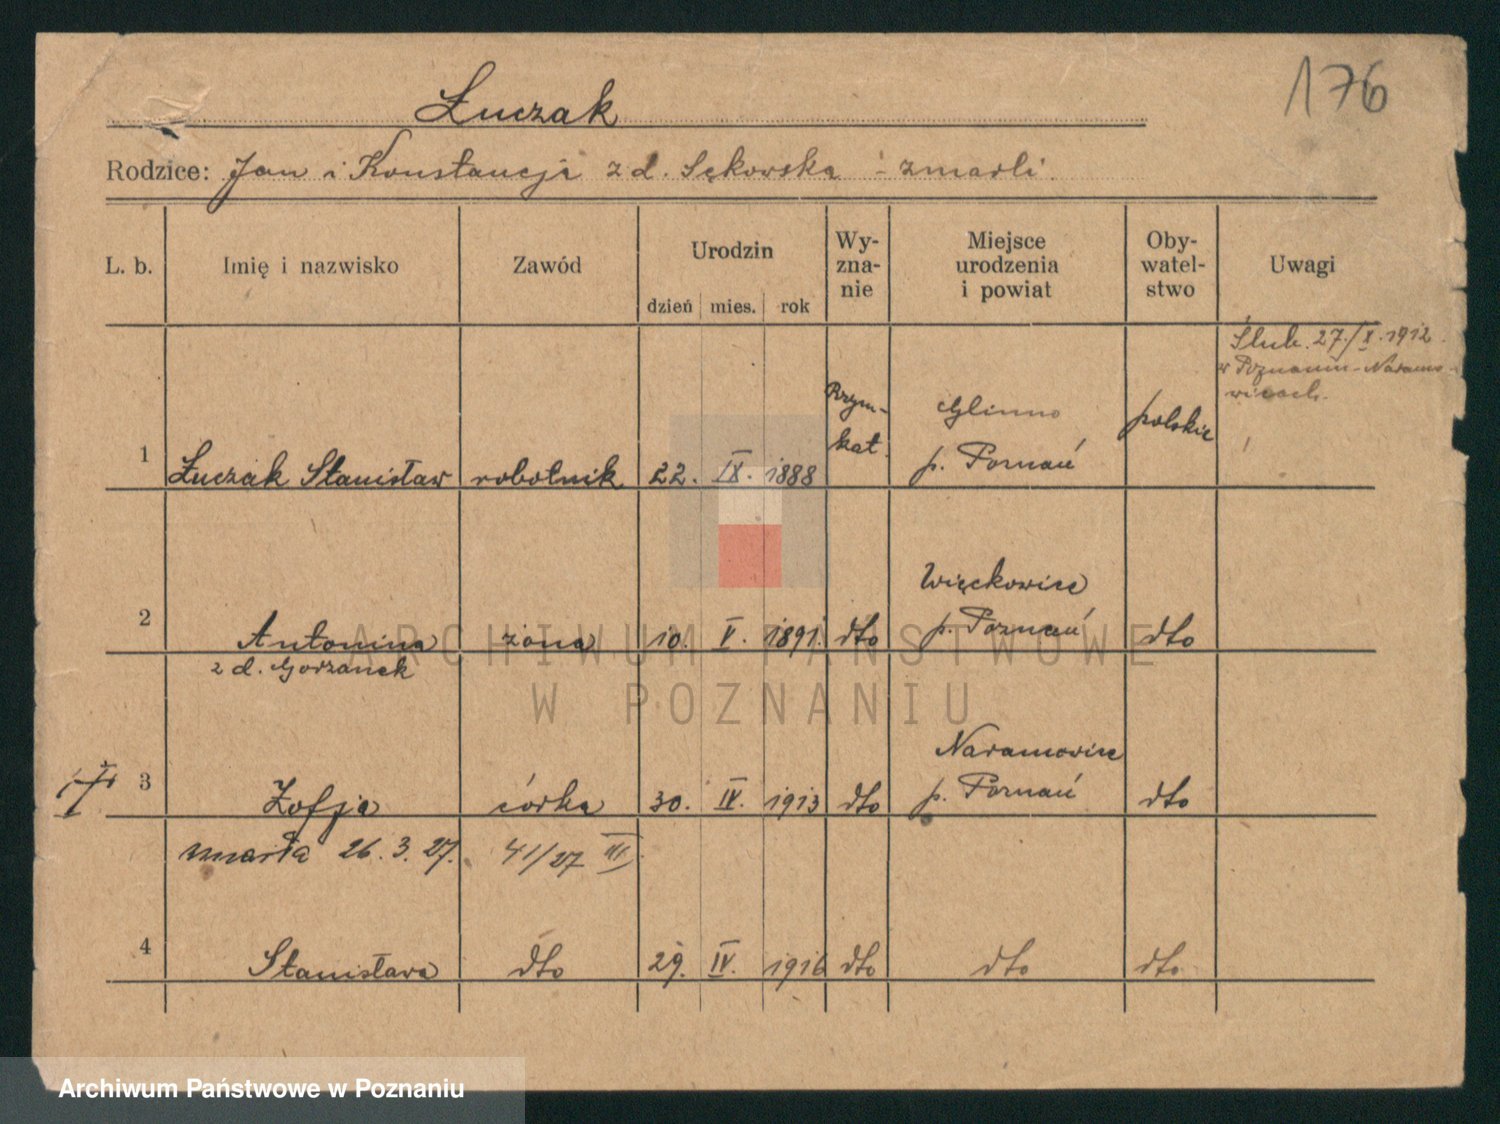 176
Łuczak
Rodzice: Jan i Konstancja z d. Sękowska - zmarli.
L. b. Imię i nazwisko Zawód Urodzin dzień mies. rok Wy-zna-nie Miejsce urodzenia i powiat Oby-watel-stwo Uwagi
Ślub. 27./X.1912.
w Poznaniu-Naramo-
wicach.
1 Łuczak Stanisław robotnik 22. IX. 1888 Rzym-kat. Glinno p. Poznań polskie
2 Antonina żona 10. V. 1891. dto Więckowice p. Poznań dto
z d. Gorzanek
3 Zofja córka 30. IV. 1913 dto Naramowice p. Poznań dto
zmarła 26.3.27. 41/27 III
4 Stanisława dto 29. IV. 1916 dto dto dto
ARCHIWUM PAŃSTWOWE
W POZNANIU
Archiwum Państwowe w Poznaniu